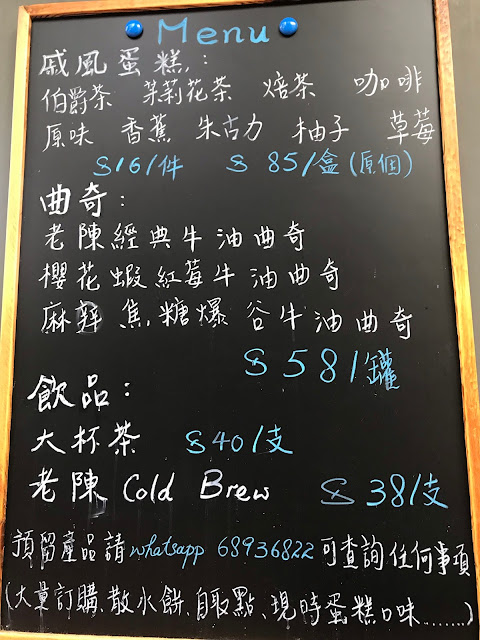 Menu
戚風蛋糕:
伯爵茶 茉莉花茶 焙茶 咖啡
原味 香蕉 朱古力 柚子 草莓
$16/件 $85/盒(原個)
曲奇:
老陳經典牛油曲奇
櫻花蝦紅莓牛油曲奇
麻辣焦糖爆谷牛油曲奇
$58/罐
飲品:
大杯茶 $40/支
老陳 Cold Brew $38/支
預留產品請whatsapp 68936822可查詢任何事項
(大量訂購、散水餅、自取點、現時蛋糕口味........)